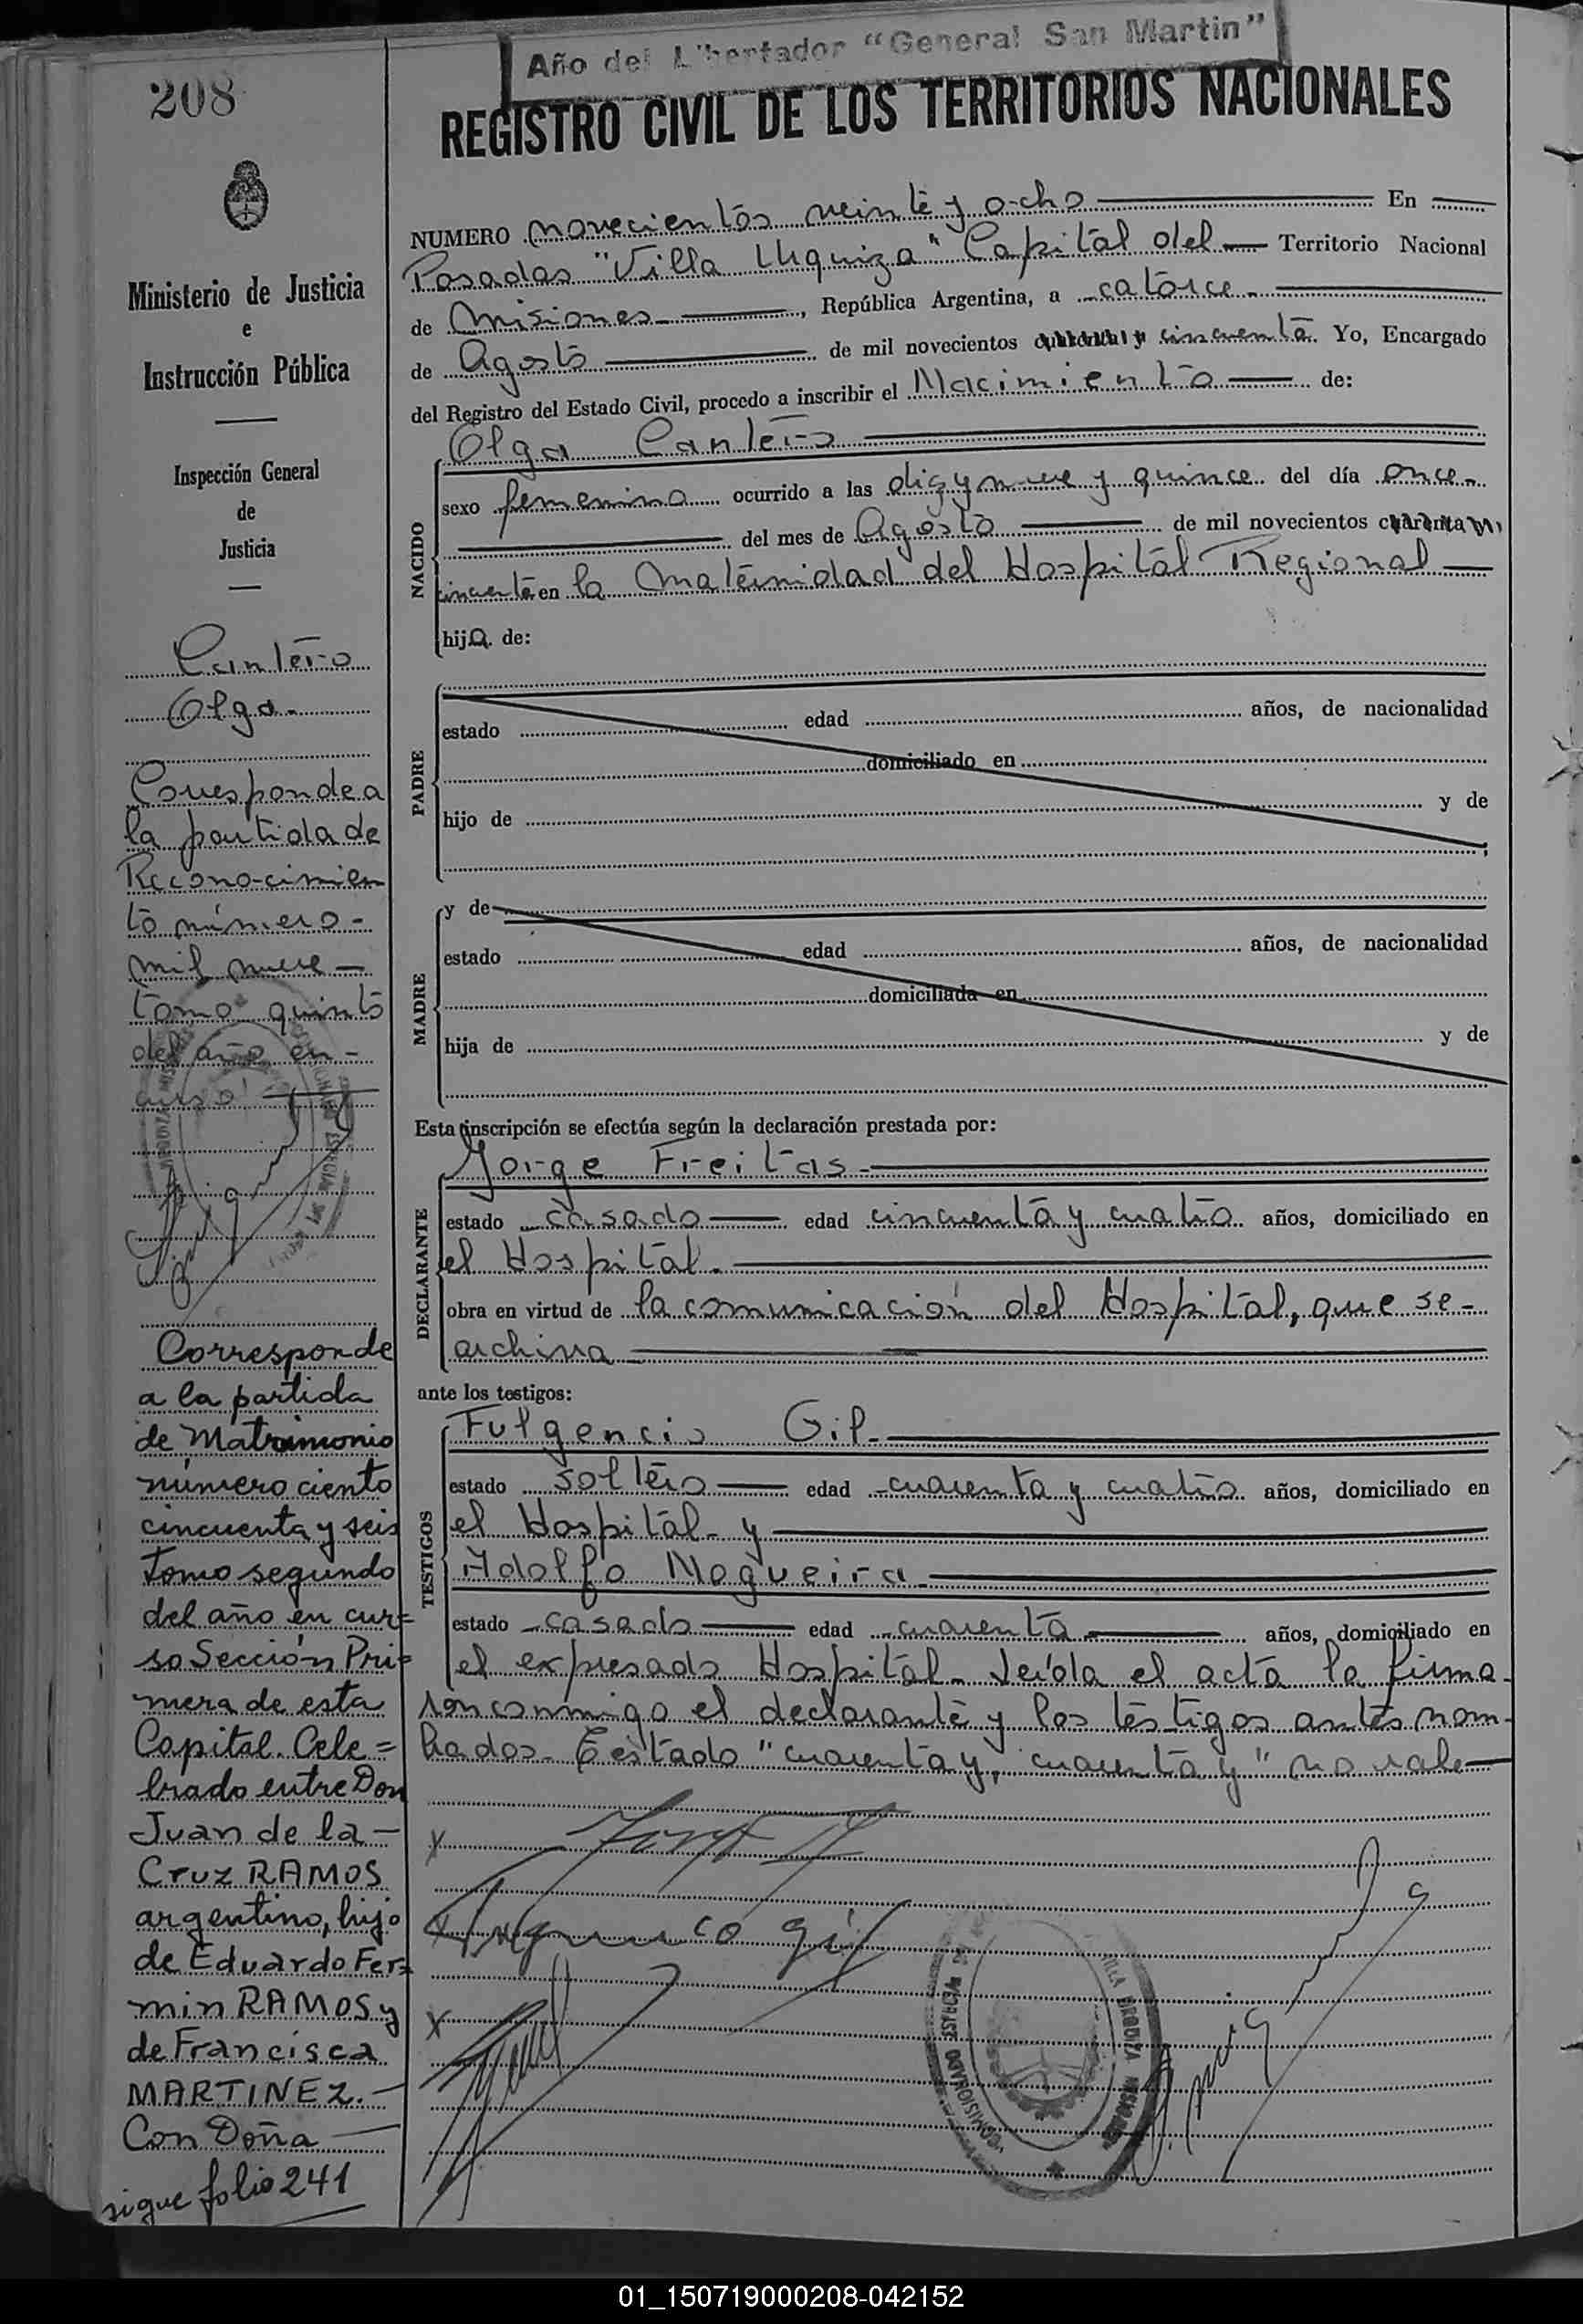 Año del Libertador "General San Martin"
208
REGISTRO CIVIL DE LOS TERRITORIOS NACIONALES
Ministerio de Justicia
e
Instrucción Pública
Inspección General
de
Justicia
NUMERO novecientos veinte y ocho En
Posadas "Villa Urquiza" Capital del Territorio Nacional
de Misiones, República Argentina, a catorce
de Agosto de mil novecientos cuarenta y cincuenta. Yo, Encargado
del Registro del Estado Civil, procedo a inscribir el Nacimiento de:
NACIDO
Olga Cantero
sexo femenino ocurrido a las diez y nueve y quince del día once
del mes de Agosto de mil novecientos cuarenta y
cincuenta en la Maternidad del Hospital Regional
hija de:
PADRE
estado edad años, de nacionalidad
domiciliado en
hijo de y de
MADRE
y de
estado edad años, de nacionalidad
domiciliada en
hija de y de
Esta inscripción se efectúa según la declaración prestada por:
DECLARANTE
Jorge Freitas
estado casado edad cincuenta y cuatro años, domiciliado en
el Hospital.
obra en virtud de la comunicación del Hospital, que se
archiva
ante los testigos:
TESTIGOS
Fulgencio Gil
estado soltero edad cuarenta y cuatro años, domiciliado en
el Hospital y
Adolfo Nogueira
estado casado edad cuarenta años, domiciliado en
el expresado Hospital. Leída el acta la firma
ron conmigo el declarante y los testigos antes nom
brados. Testado "cuarenta y, cuarenta y" no vale
Cantero
Olga.
Corresponde a
la partida de
Reconocimien
to número
mil nueve
tomo quinto
del año en
curso
Corresponde
a la partida
de Matrimonio
número ciento
cincuenta y seis
Tomo segundo
del año en cur=
so Sección Pri=
mera de esta
Capital. Cele=
brado entre Don
Juan de la
Cruz RAMOS
argentino, hijo
de Eduardo Fer=
min RAMOS y
de Francisca
MARTINEZ.
Con Doña
sigue folio 241
X
X
X
VILLA URQUIZA MISIONES
01_150719000208-042152